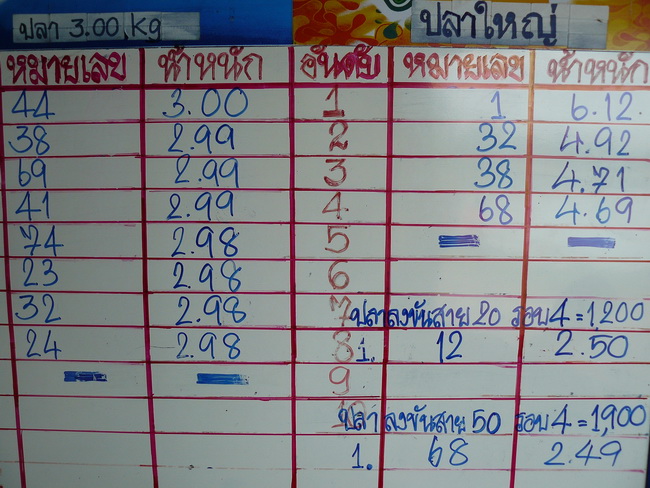 ปลา 3.00 Kg ปลาใหญ่
หมายเลข น้ำหนัก อันดับ หมายเลข น้ำหนัก
44 3.00 1 1 6.12
38 2.99 2 32 4.92
69 2.99 3 38 4.71
41 2.99 4 68 4.69
74 2.98 5
23 2.98 6
32 2.98 7 ปลาลงขันสาย 20 รอบ 4 = 1,200
24 2.98 8 1. 12 2.50
9
10 ปลาลงขันสาย 50 รอบ 4 = 1,900
1. 68 2.49